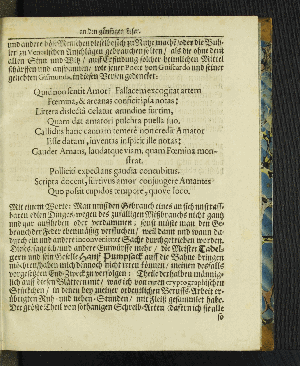 an den günstigen Leser.
und andere böse Menschen dieselbe sich zu Nutze machē, oder die Buh-
ler zu Venerischen Anschlägen gebrauchen solten / als die ohne dem
allen Sinn und Witz / auff Erfindung solcher heimlichen Mittel
schärffen und anspannen / wie jener Poete von Guiscardo und seiner
geliebten Gismunda, in diesen Versen gedencket:
Quid non sentit Amor? Fallacem excogitat artem
Fœmina, & arcanas conscicipita notas;
Littera dislecta celatur arundine furtim,
Quam dat amatori pulchra puella suo.
Callidus hanc cautam temerè non credit Amator
Esse datam, inventa inspicit ille notas;
Gaudet Amans, laudatque viam, quam Fœmina mon-
strat.
Pollicitā expectans gaudia concubitus.
Scripta docent, furtivus amor conjungere Amantes
Quo possit cupidos tempore, quove loco.
Mit einem Worte: Man muß den Gebrauch eines an sich unstraff-
baren edlen Dinges wegen des zufälligen Mißbrauchs nicht gantz
und gar auffheben oder verdammen, sonst müste man den Ge-
brauch der Feder ebenmäßig verfluchen / weil dann und wann da-
durch ein und andere inconvenientes Sache durchgetrieben worden.
Dieses sage ich und andere Vorwürffe mehr / die Meister Tadel-
gern und sein Geselle Hanß Pumpsack auff die Bahne bringen
möchten, haben mich dennoch nicht irren können / meinen deßfalls
vorgesetzten End-Zweck zu verfolgen: Theile derhalben männig-
lich auß diesen Blättern mit / was ich von einen cryptographischen
Stückchen / in denen bey meiner ordentlichen Beruffs-Arbeit er-
übrigten Ruh- und neben-Stunden / mit Fleiß gesammlet habe.
Der gröste Theil von sothanigen Schreib-Arten (daferne ich sie alle
so